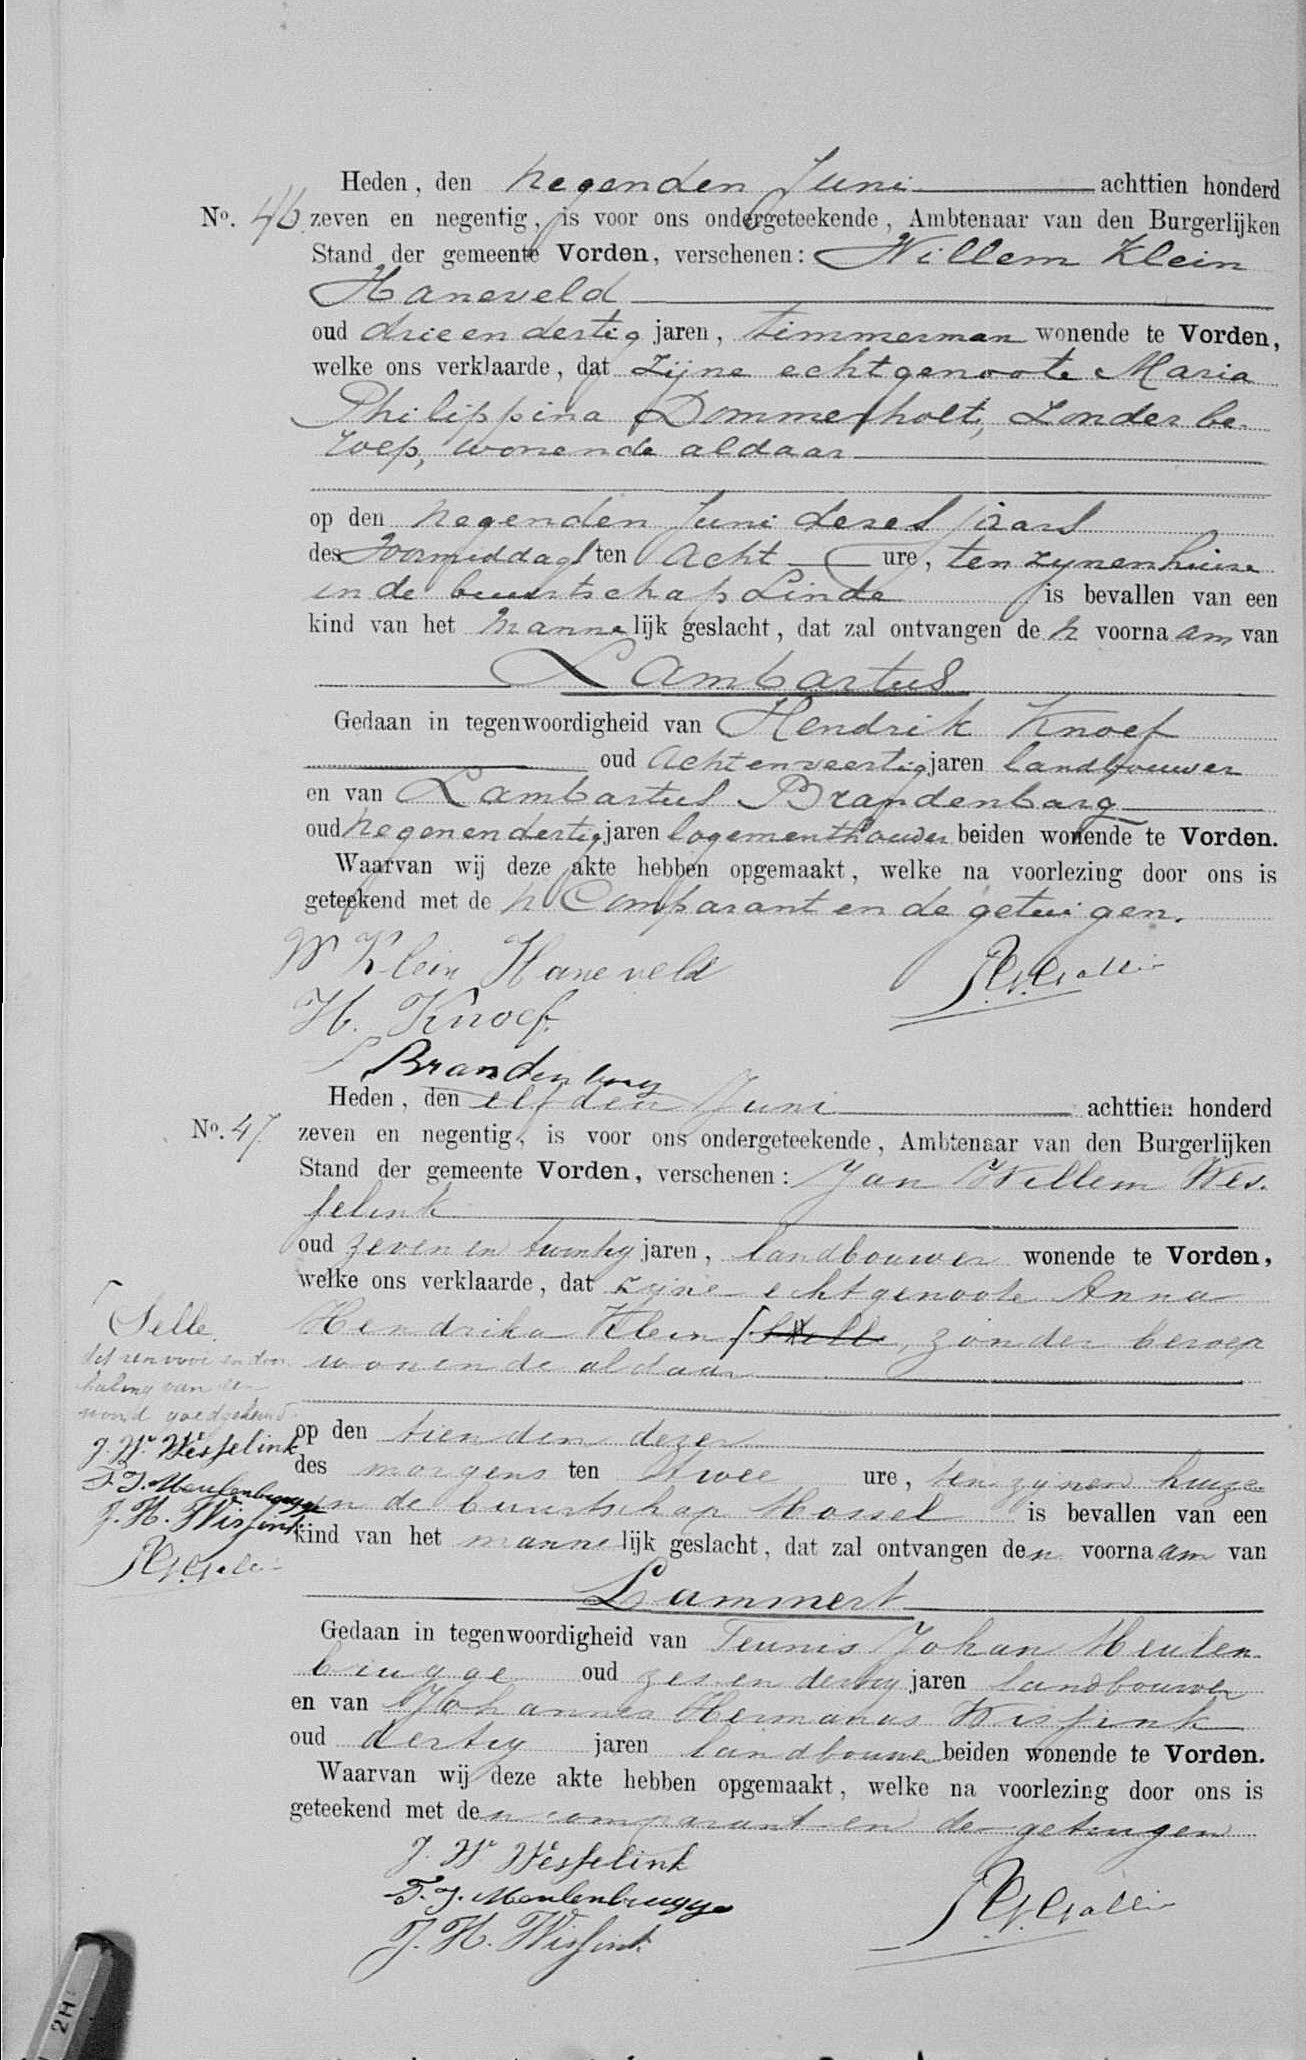 Heden, den negenden Juni achttien honderd
No. 46. zeven en negentig, is voor ons ondergeteekende, Ambtenaar van den Burgerlijken
Stand der gemeente Vorden, verschenen: Willem Klein
Haneveld
oud drie en dertig jaren, timmerman wonende te Vorden,
welke ons verklaarde, dat zijne echtgenoote Maria
Philippina Dommerholt, zonder be-
roep, wonende aldaar
op den negenden Juni dezes jaars
des Voormiddags ten acht ure, ten zynen huize
in de buurtschap Linde is bevallen van een
kind van het mannelijk geslacht, dat zal ontvangen den voornaam van
Lambartus
Gedaan in tegenwoordigheid van Hendrik Knoef
oud acht en veertig jaren landbouwer
en van Lambartus Brandenbarg
oud negen en dertig jaren logementhouder beiden wonende te Vorden.
Waarvan wij deze akte hebben opgemaakt, welke na voorlezing door ons is
geteekend met den Comparant en de getuigen.
W Klein Haneveld
Gallée
H. Knoef.
Brandenbarg
Heden, den elfden Juni achttien honderd
No. 47 zeven en negentig, is voor ons ondergeteekende, Ambtenaar van den Burgerlijken
Stand der gemeente Vorden, verschenen: Jan Willem Wes-
selink
oud zeven en twintig jaren, landbouwer wonende te Vorden,
welke ons verklaarde, dat zijne echtgenoote Anna
Hendrika Klein, zonder beroep
wonende aldaar
Selle.
Dit renvooi en door-
haling van een
woord goedgekeurd
J. W. Wesselink
T. J. Meulenbrugge
J. H. Wissink
Gallée
op den tienden dezer
des morgens ten twee ure, ten zijnen huize
in de buurtschap Mossel is bevallen van een
kind van het mannelijk geslacht, dat zal ontvangen den voornaam van
Lammert
Gedaan in tegenwoordigheid van Teunis Johan Meulen-
brugge oud zes en dertig jaren landbouwer
en van Johannes Hermanus Wissink
oud dertig jaren landbouwer beiden wonende te Vorden.
Waarvan wij deze akte hebben opgemaakt, welke na voorlezing door ons is
geteekend met den comparant en de getuigen
J. W. Wesselink
T. J. Meulenbrugge
J. H. Wissink
Gallée
2H